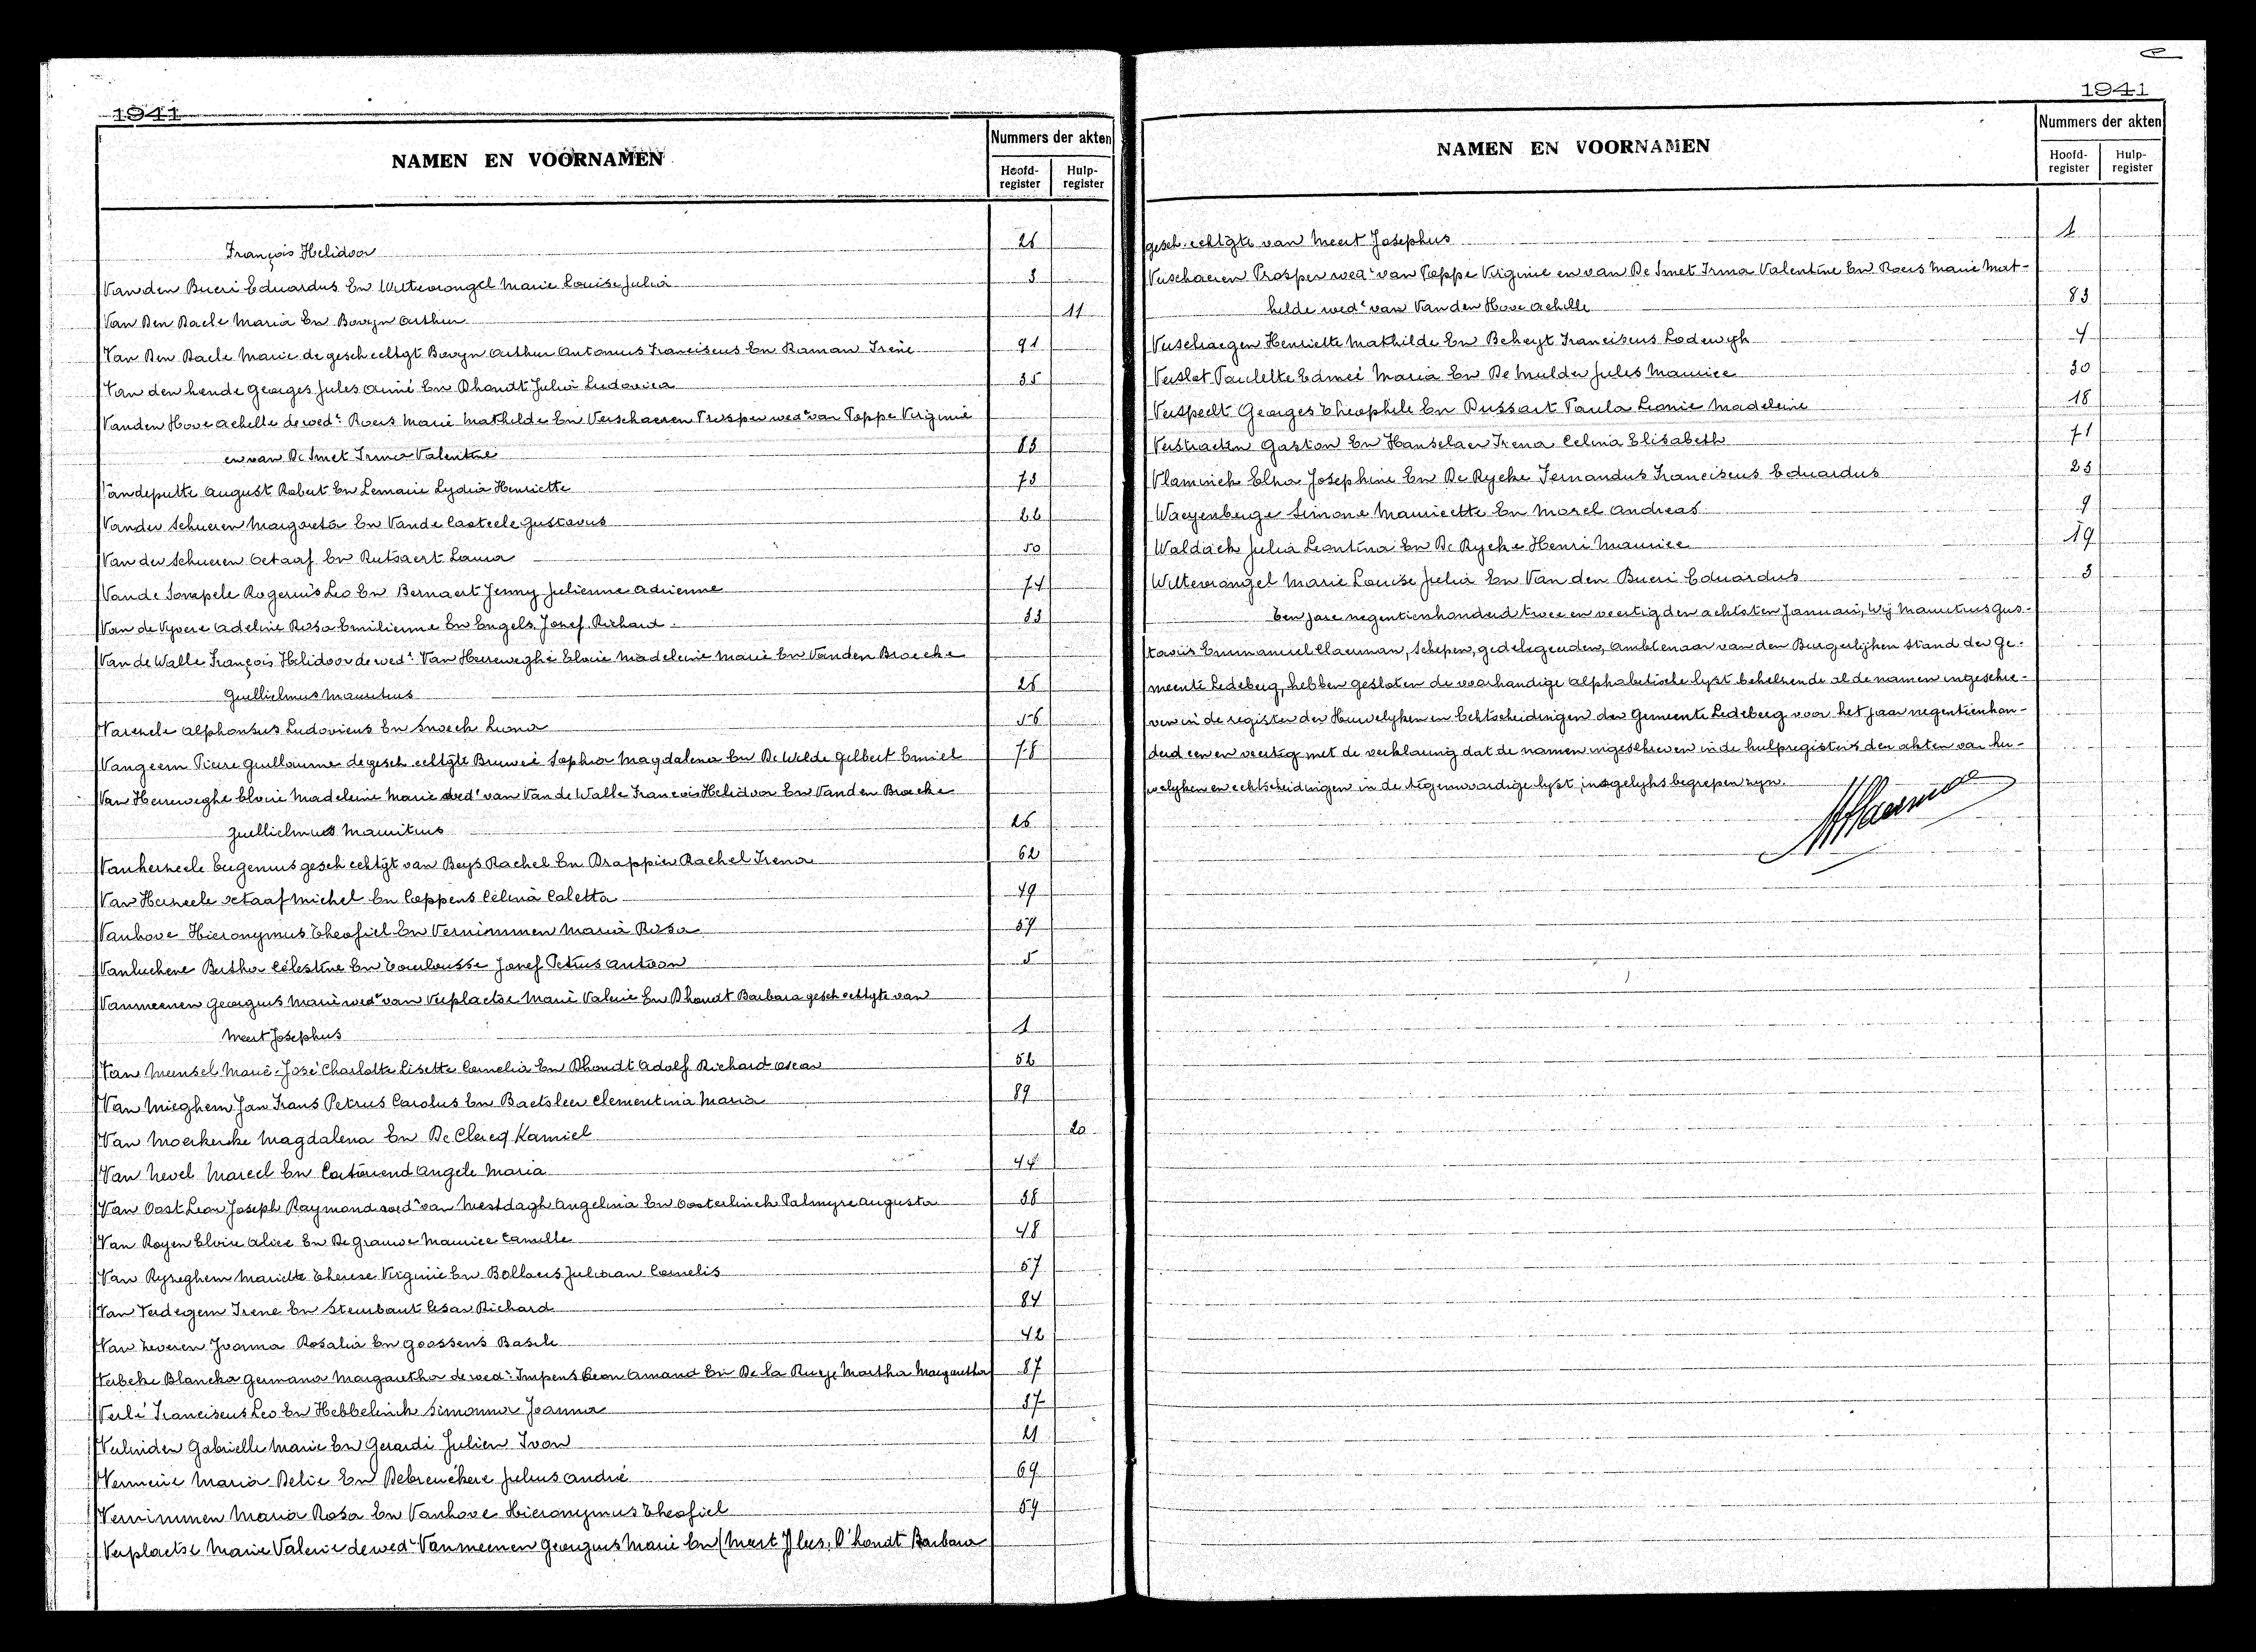 1941
NAMEN EN VOORNAMEN
Nummers der akten
Hoofd-register
Hulp-register
François Helidoor 26
Van den Bueri Eduardus En Wittewrongel Marie Louise Julia 3
Van Den Daele Maria En Bovyn Arthur 11
Van Den Daele Marie de gesch echtgt Bovyn Arthur Antonius Franciscus En Raman Irène 91
Van den hende Georges Jules Aimé En Dhondt Julia Ludovica 35
Vanden Hove Achelle de wedr Roers Marie Mathilde En Verschaeren Prosper wedr van Poppe Virginie
en van De Smet Irma Valentine 83
Vandeputte August Robert En Lemaire Lydia Henriette 73
Vander Schueren Margareta En Vande Casteele Gustavus 22
Van der Schueren Octaaf En Rutsaert Laura 50
Vande Sompele Rogerius Leo En Bernaert Jenny Julienne Adrienne 74
Van de Vyvere Adeline Rosa Emilienne En Engels Josef Richard 33
Van de Walle François Helidoor de wedr Van Herreweghe Eloïe Madeleine Marie En Vanden Broecke
Guillielmus Mauritius 26
Varenele Alphonsus Ludovicus En Snoeck Leona 56
Vangeem Pierre Guillaume de gesch echtgte Bruwié Sophia Magdalena En De Wilde Gilbert Emiel 78
Van Herreweghe Eloïe Madeleine Marie wedr van Van de Walle Francois Helidoor En Vanden Broecke
Guillielmus Mauritius 26
Vanherneele Eugenius gesch echtgt van Beys Rachel En Drappier Rachel Irena 62
Van Herneele Octaaf Michel En Coppens Célina Coletta 49
Vanhove Hieronymus Theofiel En Vernimmen Maria Rosa 59
Vanluchene Bertha Célestine En Toulousse Josef Petrus Antoon 5
Vanmeenen Georgius Marie wedr van Verplaetse Marie Valerie En Dhondt Barbara gesch echtgte van
Meert Josephus 1
Van Meensel Marie-José Charlotte Lisette Cornelia En Dhondt Adolf Richard Oscar 52
Van Mieghem Jan Frans Petrus Carolus En Baetsleer Clementina Maria 89
Van Moerkerke Magdalena En De Clercq Kamiel 20
Van Nevel Marcel En Angele Maria 44
Van Oost Leon Joseph Raymond wedr van Westdagh Angelina En Oosterlinck Palmyre Augusta 38
Van Royen Eloïse Alice En De Grauwe Maurice Camille 48
Van Ryseghem Mariette Therese Virginie En Bollaers Juliaan Cornelis 57
Van Verdegem Irene En Steurbaut Cesar Richard 84
Van Zeveren Joanna Rosalia En Goossens Basile 42
Verbeke Blancka Germana Margaretha de wedr Impens Leon Amand En De la Ruye Martha Margaretha 87
Verlé Franciscus Leo En Hebbelinck Simonna Joanna 37
Verlinden Gabrielle Marie En Gerardi Julien Ivon 21
Vermeire Maria Delie En Debreuckere Julius André 69
Vernimmen Maria Rosa En Vanhove Hieronymus Theofiel 59
Verplaetse Marie Valerie de wedr Vanmeenen Georgius Marie En (Meert D'hondt Barbara
1941
NAMEN EN VOORNAMEN
Nummers der akten
Hoofd-register
Hulp-register
gesch. echtgte van Meert Josephus 1
Verschaeren Prosper wedr van Poppe Virginie en van De Smet Irma Valentine En Roers Marie Mat-
helde wedr van Van den Hove Achelle 83
Verschraegen Henriette Mathilde En Beheyt Franciscus Lodewyk 4
Verslot Paulette Edmeé Maria En De Mulder Jules Maurice 30
Verspeelt Georges Theophile En Dussart Paula Leonie Madeleine 18
Verstraeten Gaston En Hanselaer Irena Celina Elisabeth 71
Vlaminck Elza Josephine En De Rycke Fernandus Franciscus Eduardus 25
Waeyenberge Simone Mauricette En Morel Andreas 9
Waldack Julia Leontina En De Rycke Henri Maurice 19
Wittewrongel Marie Louise Julia En Van den Bueri Eduardus 3
Een jare negentienhonderd twee en veertig den achtsten Januari, Wij Mauritius Gus-
tavus Emmanuel Claerman, Schepen, gedelegeerden, Ambtenaar van den Burgerlijken stand der Ge-
meente Ledeberg, hebben gesloten de voorhandige alphabetische lyst behelzende al de namen ingeschre-
ven in de registers der Huwelyken en Echtscheidingen der Gemeente Ledeberg voor het jaar negentienhon-
derd een en veertig met de verklaring dat de namen ingeschreven in de hulpregisters der akten van hu-
welyken en echtscheidingen in de tegenwoordige lyst insgelyks begrepen zyn.